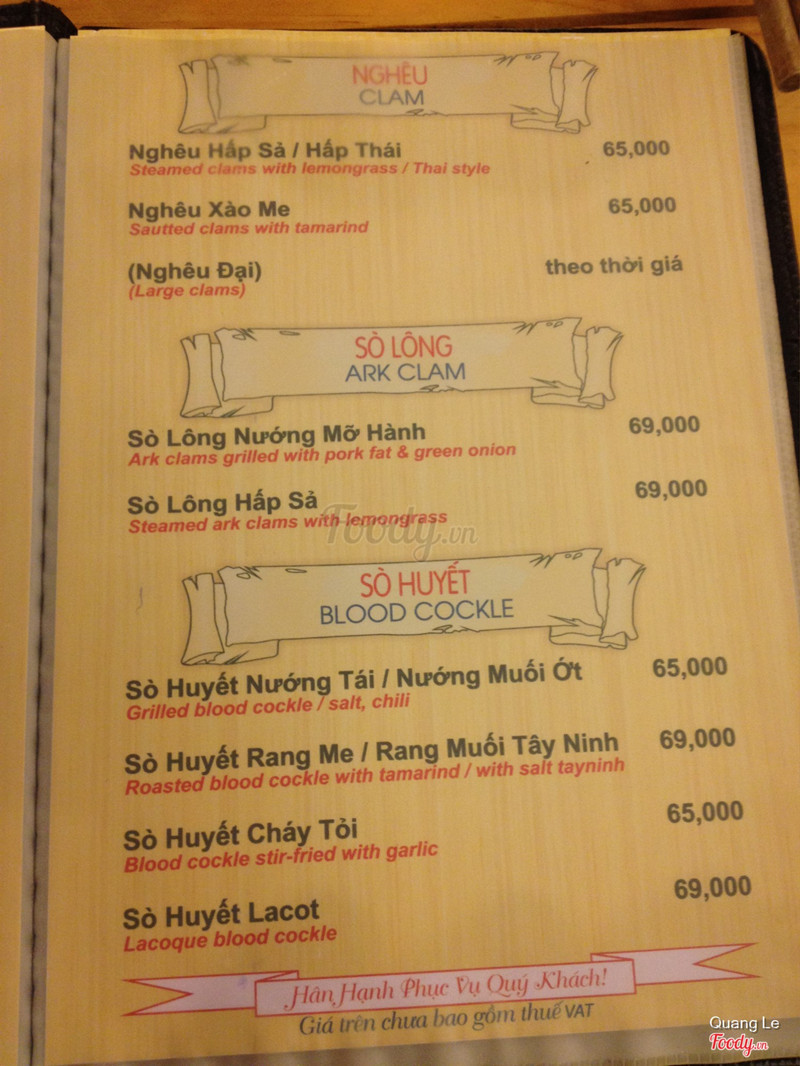 NGHÊU
CLAM
Nghêu Hấp Sả / Hấp Thái 65,000
Steamed clams with lemongrass / Thai style
Nghêu Xào Me 65,000
Sautted clams with tamarind
(Nghêu Đại) theo thời giá
(Large clams)
SÒ LÔNG
ARK CLAM
Sò Lông Nướng Mỡ Hành 69,000
Ark clams grilled with pork fat & green onion
Sò Lông Hấp Sả 69,000
Steamed ark clams with lemongrass
Foody.vn
SÒ HUYẾT
BLOOD COCKLE
Sò Huyết Nướng Tái / Nướng Muối Ớt 65,000
Grilled blood cockle / salt, chili
Sò Huyết Rang Me / Rang Muối Tây Ninh 69,000
Roasted blood cockle with tamarind / with salt tayninh
Sò Huyết Cháy Tỏi 65,000
Blood cockle stir-fried with garlic
Sò Huyết Lacot 69,000
Lacoque blood cockle
Hân Hạnh Phục Vụ Quý Khách!
Giá trên chưa bao gồm thuế VAT
Quang Le
Foody.vn